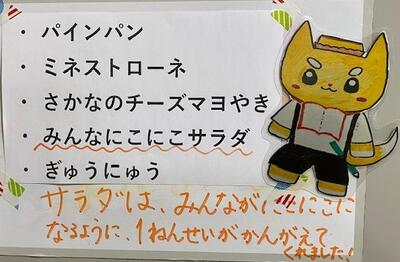 ・ パインパン
・ ミネストローネ
・ さかなのチーズマヨやき
・ みんなにこにこサラダ
・ ぎゅうにゅう
サラダは、みんながにこにこに
なるように、1ねんせいがかんがえて
くれました！